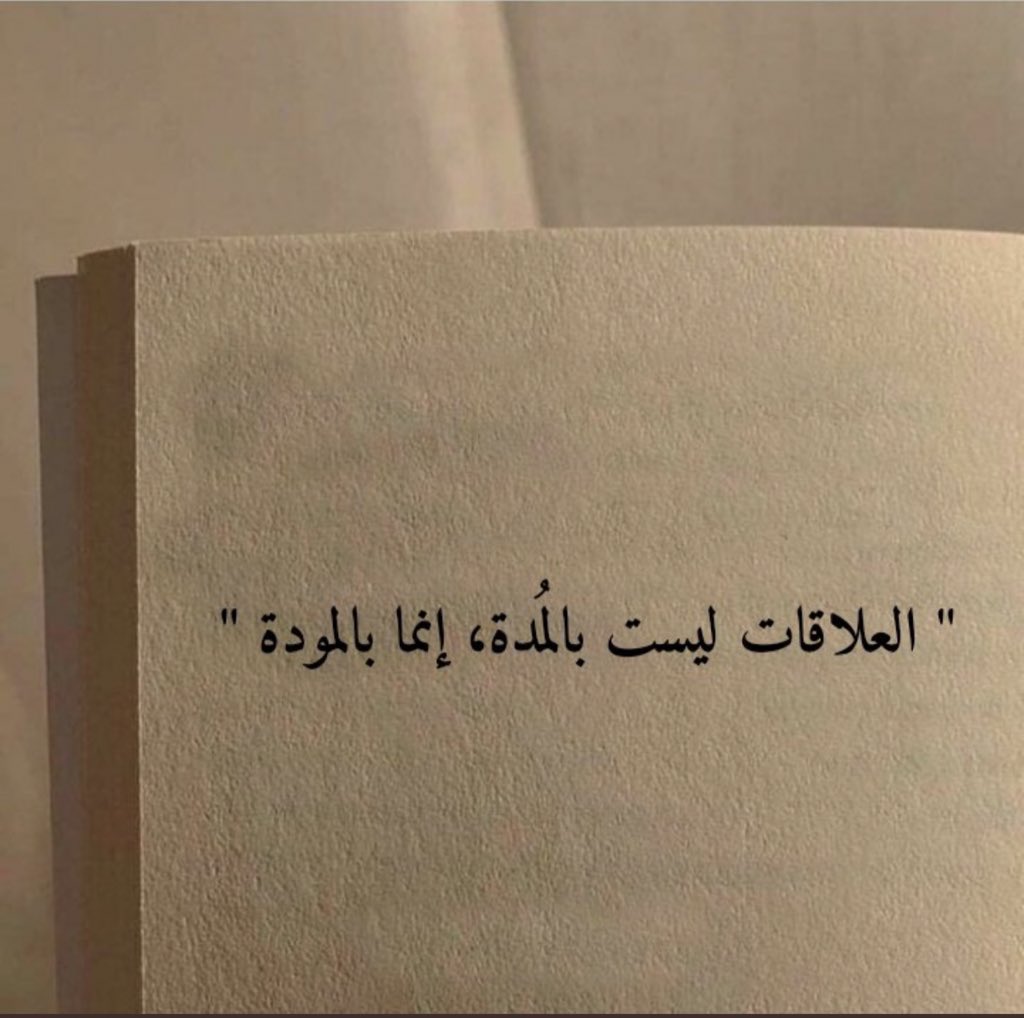 " العلاقات ليست بالمُدة، إنما بالمودة "